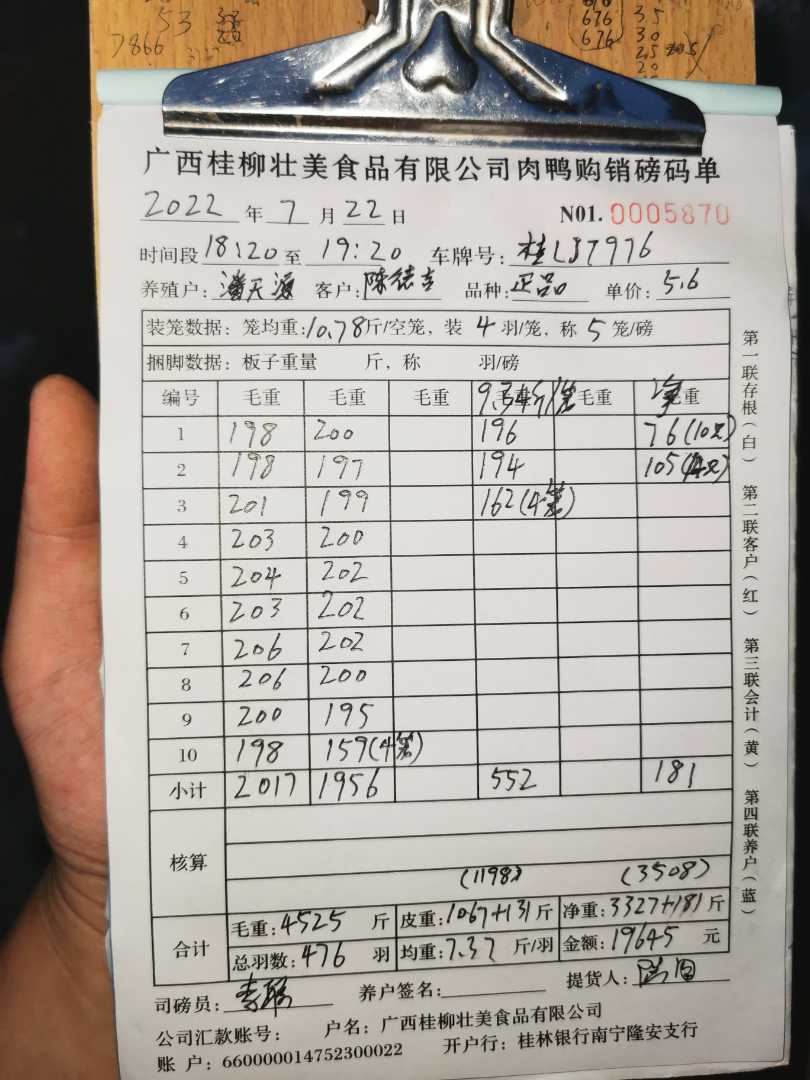 53
7866
676 3.5
(676) 3.0
2.5
20
广西桂柳壮美食品有限公司肉鸭购销磅码单
2022 年 7 月 22 日 N01. 0005870
时间段 18:20 至 19:20 车牌号: 桂L37976
养殖户: 潘天源 客户: 陈德吉 品种: 正品 单价: 5.6
装笼数据: 笼均重: 10.78 斤/空笼, 装 4 羽/笼, 称 5 笼/磅
捆脚数据: 板子重量 斤, 称 羽/磅
编号 毛重 毛重 毛重 毛重 9.34斤/笼 毛重 毛重 净
1 198 200 196 76(10只)
2 198 197 194 105(14只)
3 201 199 162(4笼)
4 203 200
5 204 202
6 203 202
7 206 202
8 206 200
9 200 195
10 198 159(4笼)
小计 2017 1956 552 181
核算
(1198) (3508)
合计 毛重: 4525 斤 皮重: 1067+131 斤 净重: 3327+181 斤
总羽数: 476 羽 均重: 7.37 斤/羽 金额: 19645 元
司磅员: 养户签名: 提货人:
公司汇款账号: 户名: 广西桂柳壮美食品有限公司
账 户: 660000014752300022 开户行: 桂林银行南宁隆安支行
第一联存根(白) 第二联客户(红) 第三联会计(黄) 第四联养户(蓝)